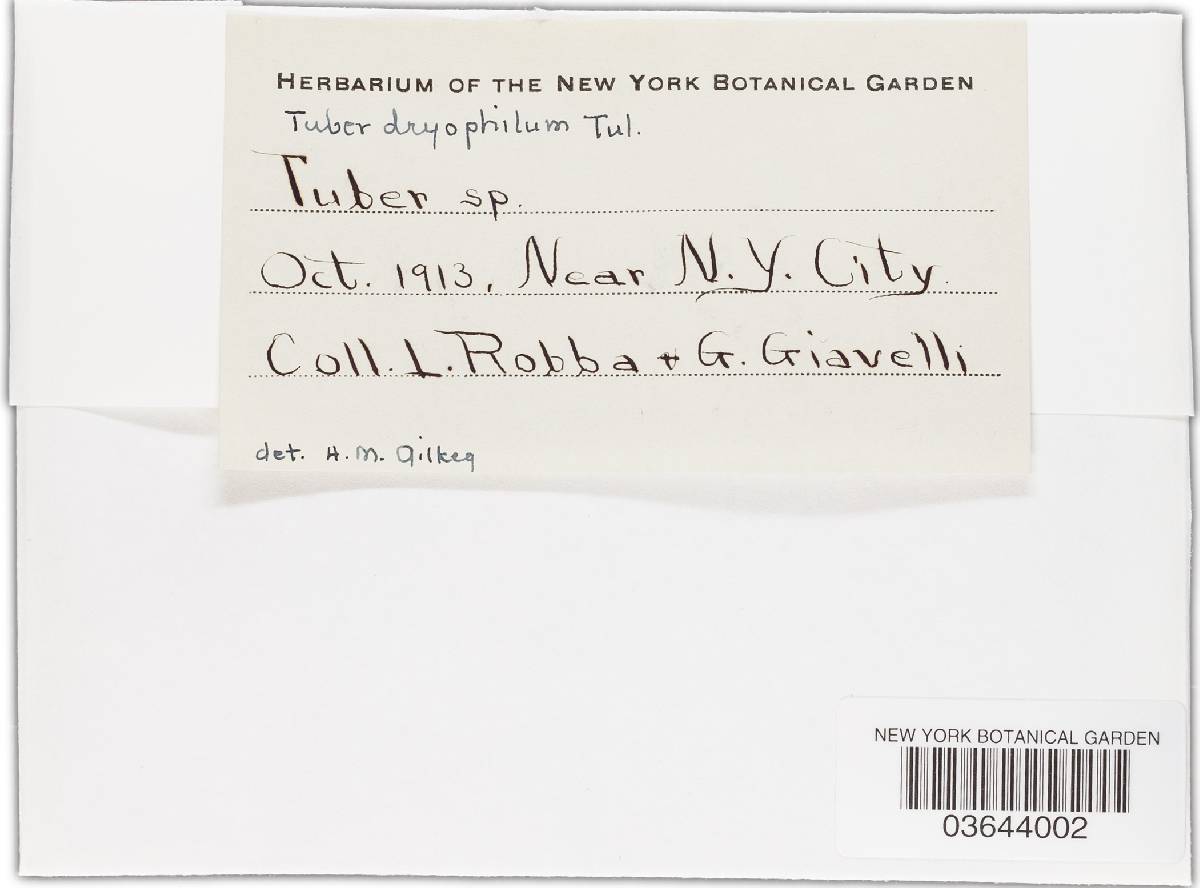 HERBARIUM OF THE NEW YORK BOTANICAL GARDEN
Tuber dryophilum Tul.
Tuber sp.
Oct. 1913, Near N.Y. City.
Coll. L. Robba + G. Giavelli
det. H. M. Gilkey
NEW YORK BOTANICAL GARDEN
03644002